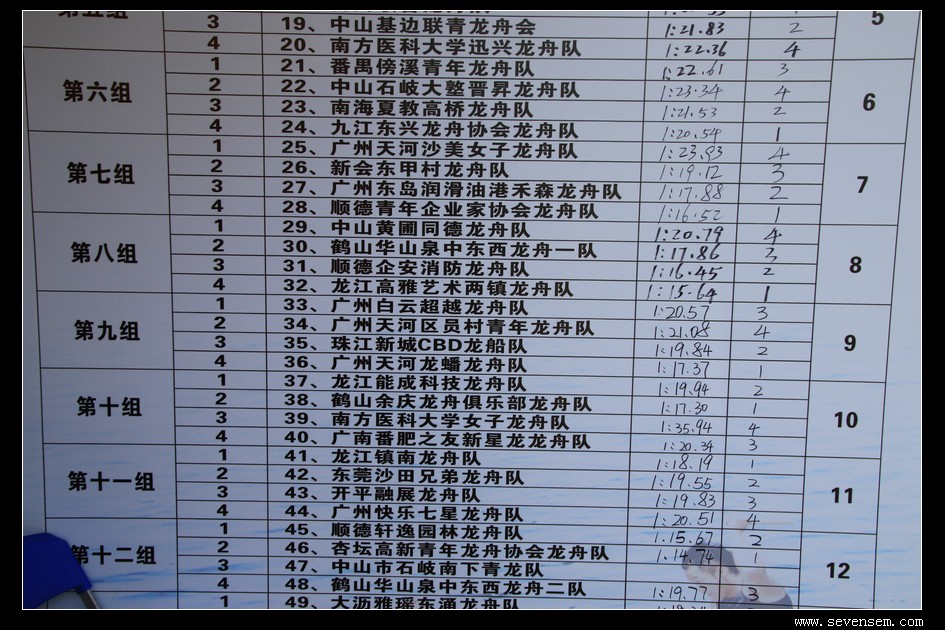 3 19、中山基边联青龙舟会 1:21.83 2 5
4 20、南方医科大学迅兴龙舟队 1:22.36 4
第六组 1 21、番禺傍溪青年龙舟队 1:22.61 3 6
2 22、中山石岐大整晋昇龙舟队 1:23.34 4
3 23、南海夏教高桥龙舟队 1:21.53 2
4 24、九江东兴龙舟协会龙舟队 1:20.54 1
第七组 1 25、广州天河沙美女子龙舟队 1:23.93 4 7
2 26、新会东甲村龙舟队 1:19.12 3
3 27、广州东岛润滑油港禾森龙舟队 1:17.88 2
4 28、顺德青年企业家协会龙舟队 1:16.52 1
第八组 1 29、中山黄圃同德龙舟队 1:20.79 4 8
2 30、鹤山华山泉中东西龙舟一队 1:17.86 3
3 31、顺德企安消防龙舟队 1:16.45 2
4 32、龙江高雅艺术两镇龙舟队 1:15.64 1
第九组 1 33、广州白云超越龙舟队 1:20.57 3 9
2 34、广州天河区员村青年龙舟队 1:21.08 4
3 35、珠江新城CBD龙船队 1:19.84 2
4 36、广州天河龙蟠龙舟队 1:17.37 1
第十组 1 37、龙江能成科技龙舟队 1:19.94 2 10
2 38、鹤山余庆龙舟俱乐部龙舟队 1:17.30 1
3 39、南方医科大学女子龙舟队 1:35.94 4
4 40、广南番肥之友新星龙龙舟队 1:20.34 3
第十一组 1 41、龙江镇南龙舟队 1:18.19 1 11
2 42、东莞沙田兄弟龙舟队 1:19.55 2
3 43、开平融展龙舟队 1:19.83 3
4 44、广州快乐七星龙舟队 1:20.51 4
第十二组 1 45、顺德轩逸园林龙舟队 1:15.67 2 12
2 46、杏坛高新青年龙舟协会龙舟队 1:14.74 1
3 47、中山市石岐南下青龙队
4 48、鹤山华山泉中东西龙舟二队 1:19.77 3
1 49、大沥雅瑶东涌龙舟队
www.sevensem.com